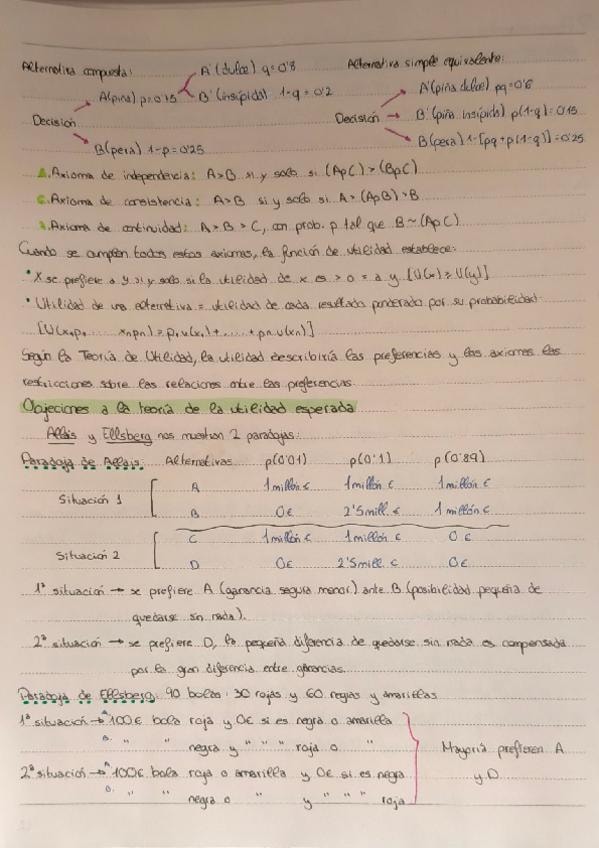 Alternativa compuesta: Alternativa simple equivalente:
A'(dulce) q=0'8 A'(piña dulce) pq=0'6
A(piña) p=0'75 B'(insípida) 1-q=0'2
Decisión Decisión B'(piña insípida) p(1-q)=0'15
B(pera) 1-p=0'25 B(pera) 1-[pq+p(1-q)]=0'25
Axioma de independencia: A>B si y solo si (ApC) > (BpC)
Axioma de consistencia: A>B si y solo si A > (ApB) > B
Axioma de continuidad: A>B>C, con prob. p tal que B~(ApC)
Cuando se cumplen todos estos axiomas, la función de utilidad establece:
• X se prefiere a y si y solo si la utilidad de x es > o = a y [U(x) ≥ U(y)]
• Utilidad de una alternativa = utilidad de cada resultado ponderado por su probabilidad
[U(x1p1, ..... xnpn) = p1u(x1)+.....+pnu(xn)]
Según la Teoría de Utilidad, la utilidad describiría las preferencias y los axiomas las
restricciones sobre las relaciones entre las preferencias.
Objeciones a la teoría de la utilidad esperada
Allais y Ellsberg nos muestran 2 paradojas:
Paradoja de Allais: Alternativas p(0'01) p(0'1) p(0'89)
Situación 1 A 1 millón € 1 millón € 1 millón €
B 0€ 2'5 mill. € 1 millón €
Situación 2 C 1 millón € 1 millón € 0€
D 0€ 2'5 mill € 0€
1ª situación → se prefiere A (ganancia segura menor) ante B (posibilidad pequeña de
quedarse sin nada).
2ª situación → se prefiere D, la pequeña diferencia de quedarse sin nada es compensada
por la gran diferencia entre ganancias.
Paradoja de Ellsberg: 90 bolas: 30 rojas y 60 negras y amarillas
1ª situación → A 100€ bola roja y 0€ si es negra o amarilla
B. " " negra y " " " roja o "
Mayoría prefieren A
y D
2ª situación → A 100€ bola roja o amarilla y 0€ si es negra
" " negra o " y " " " roja